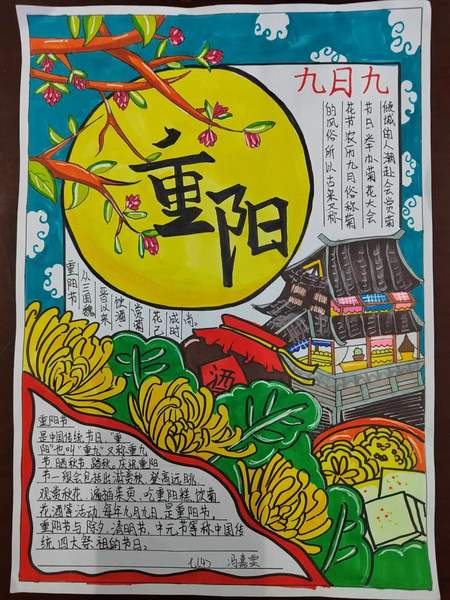 九日九
重阳
倾城的人潮赴会赏菊
节日举办菊花大会
花节农历九月俗称菊
的风俗所以古来又称
重阳节
从三国魏
晋以来
饮酒、
赏菊
花已
成时
尚。
酒
重阳节
是中国传统节日。"重
阳"也叫"重九"又称重九
节 晒秋节 踏秋。庆祝重阳
节一般会包括出游赏秋 登高远眺
观赏秋花 遍插茱萸、吃重阳糕 饮菊
花酒等活动 每年九月九日是重阳节。
重阳节与除夕、清明节、中元节等称中国传
统四大祭祖的节日。
(4) 冯嘉雯